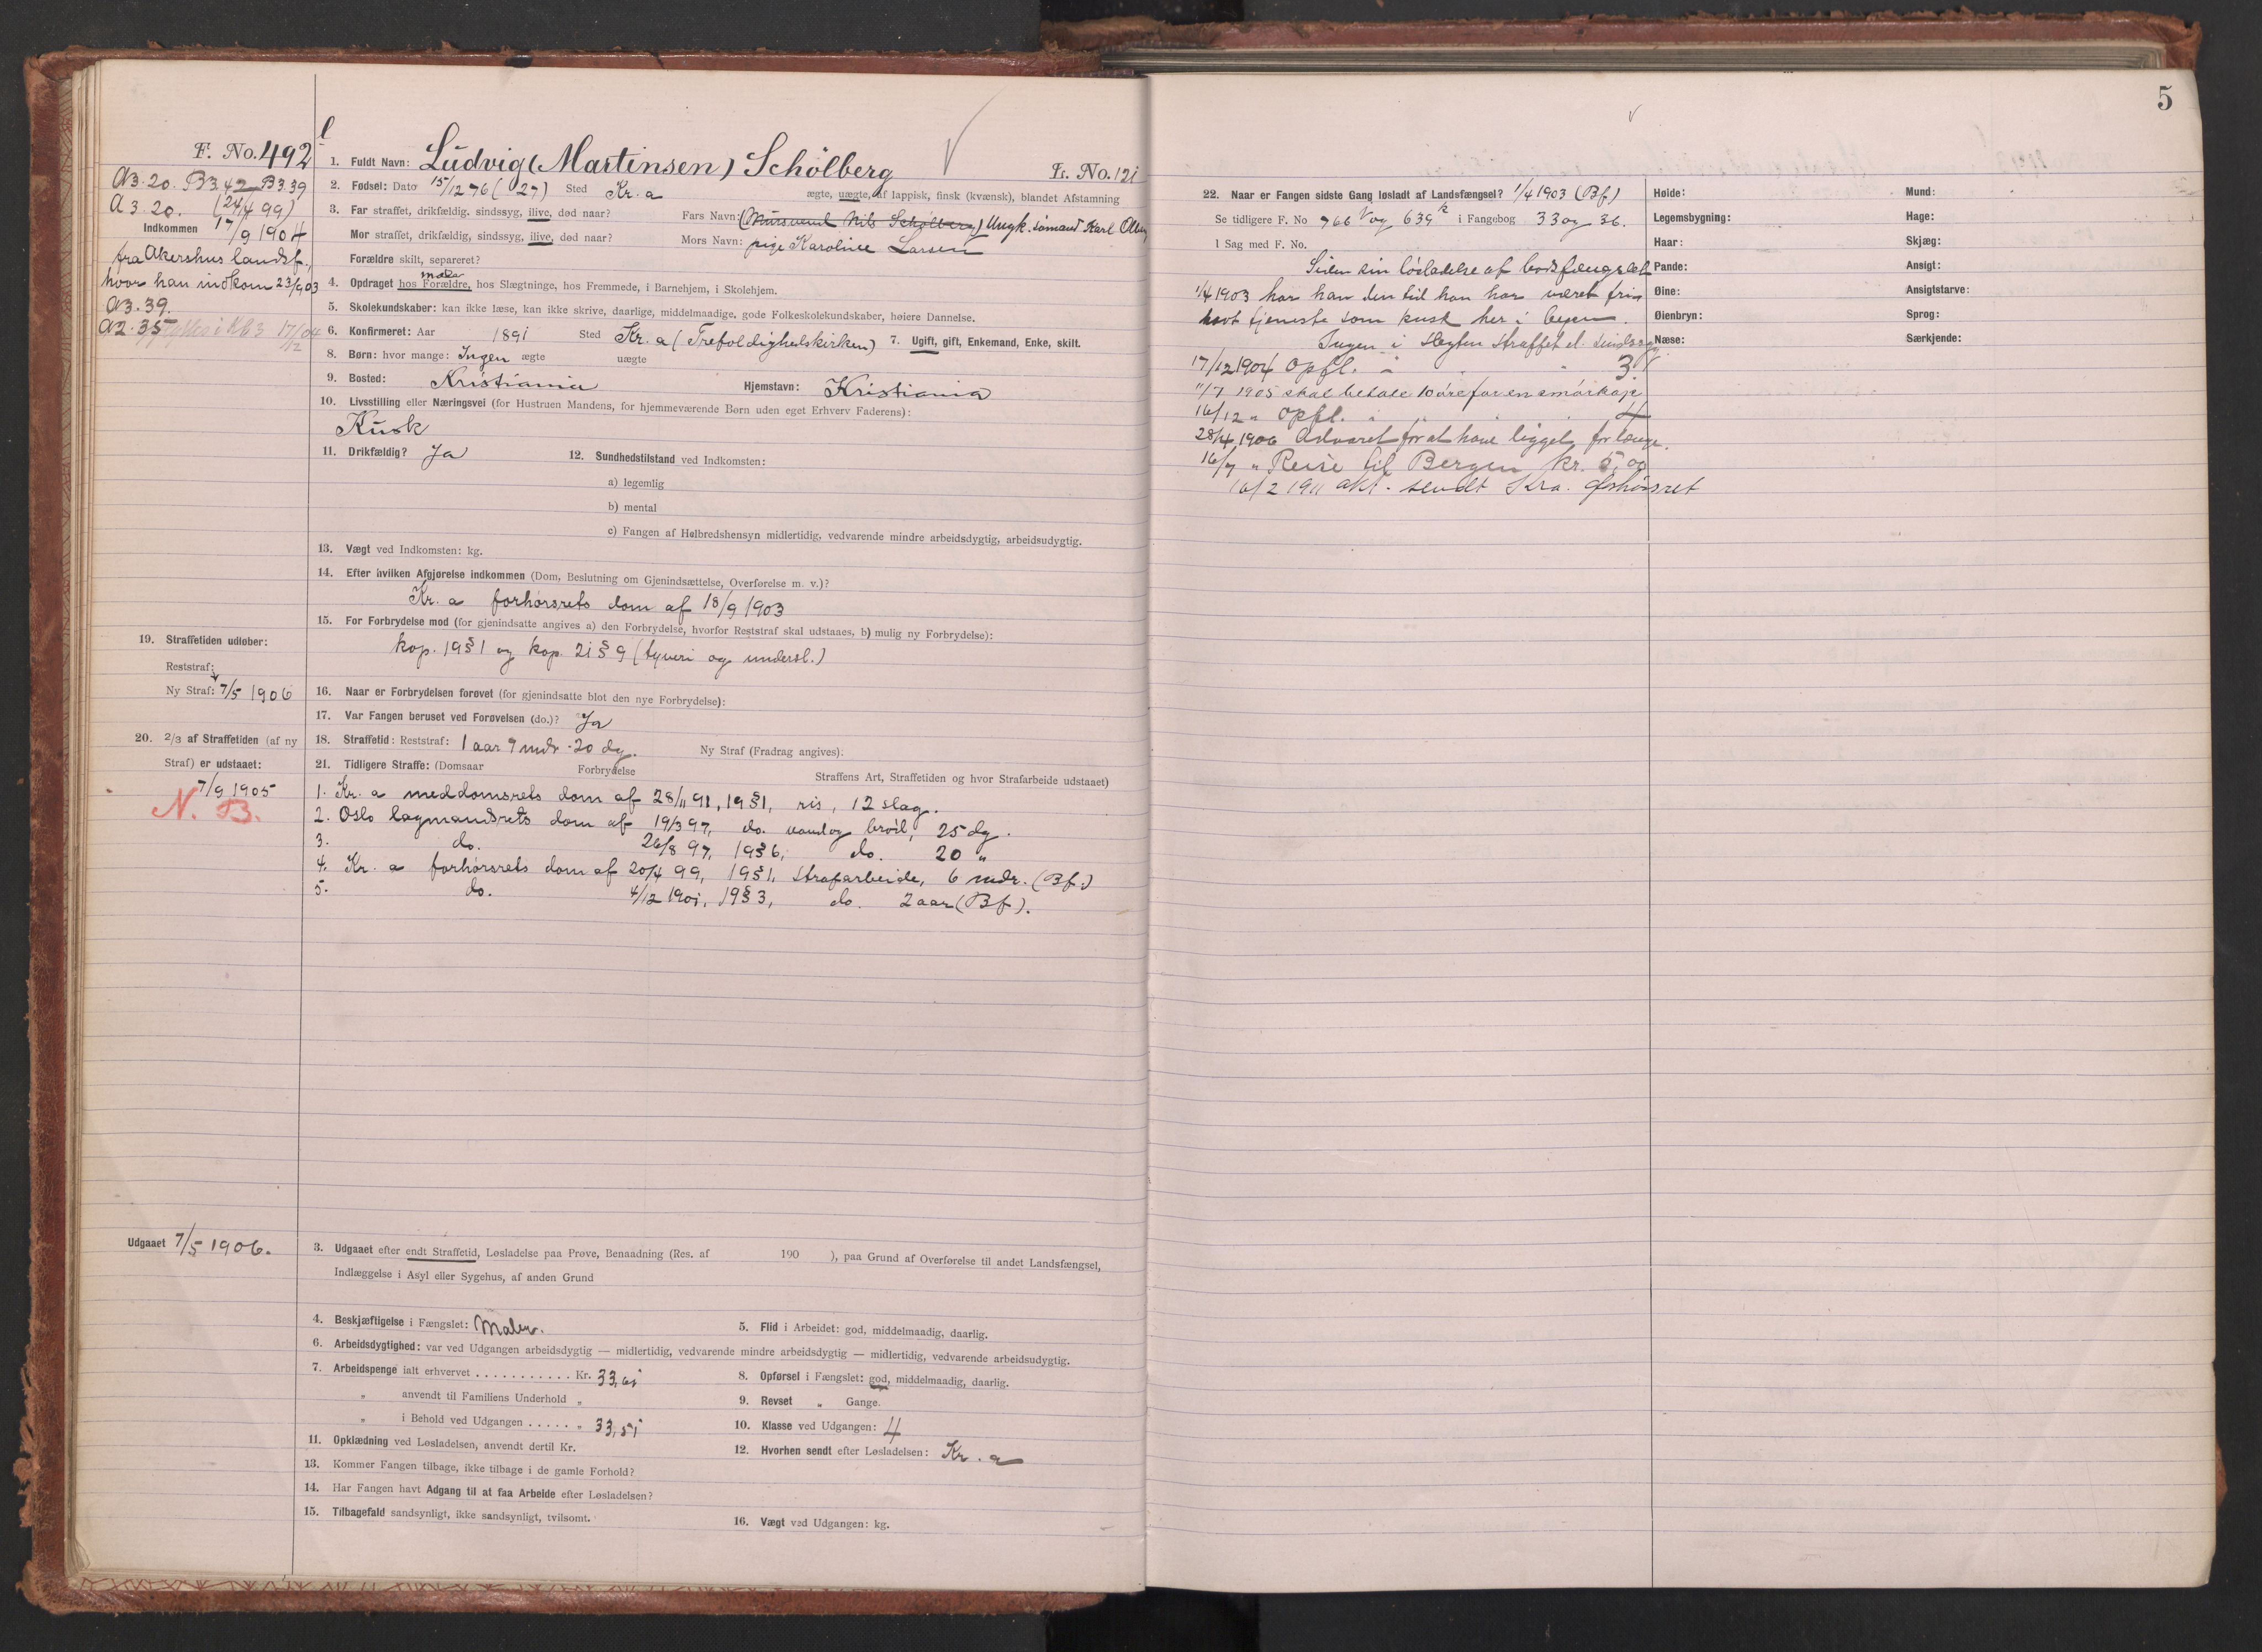 5
F. No. 492
A3.20. B3.42 B3.39
A3.20. (24/4 99)
Indkommen 17/9 1904
fra Akershus landsf.,
hvor han indkom 23/9 03
A3.39.
A2.35
1. Fuldt Navn: Ludvig (Martinsen) Schölberg
Fs. No. 121
2. Fødsel: Dato 15/12 76 (27) Sted Kr.a ægte, uægte, af lappisk, finsk (kvænsk), blandet Afstamning
3. Far straffet, drikfældig, sindssyg, ilive, død naar? Fars Navn: (Mursvend Nils Schølberg) Ungk. sømand Karl Olsen
Mor straffet, drikfældig, sindssyg, ilive, død naar? Mors Navn: pige Karoline Larsen
Forældre skilt, separeret?
moder
4. Opdraget hos Forældre, hos Slægtninge, hos Fremmede, i Barnehjem, i Skolehjem.
5. Skolekundskaber: kan ikke læse, kan ikke skrive, daarlige, middelmaadige, gode Folkeskolekundskaber, høiere Dannelse.
6. Konfirmeret: Aar 1891 Sted Kr.a (Trefoldighedskirken) 7. Ugift, gift, Enkemand, Enke, skilt.
8. Børn: hvor mange: Ingen ægte uægte
9. Bosted: Kristiania Hjemstavn: Kristiania
10. Livsstilling eller Næringsvei (for Hustruen Mandens, for hjemmeværende Børn uden eget Erhverv Faderens):
Kusk
11. Drikfældig? Ja 12. Sundhedstilstand ved Indkomsten:
a) legemlig
b) mental
c) Fangen af Helbredshensyn midlertidig, vedvarende mindre arbeidsdygtig, arbeidsudygtig.
13. Vægt ved Indkomsten: kg.
14. Efter hvilken Afgjørelse indkommen (Dom, Beslutning om Gjenindsættelse, Overførelse m. v.)?
Kr.a forhørsrets dom af 18/9 1903
15. For Forbrydelse mod (for gjenindsatte angives a) den Forbrydelse, hvorfor Reststraf skal udstaaes, b) mulig ny Forbrydelse):
kap. 19 § 1 og kap. 21 § 9 (tyveri og undersl.)
19. Straffetiden udløber:
Reststraf:
Ny Straf: 7/5 1906
16. Naar er Forbrydelsen forøvet (for gjenindsatte blot den nye Forbrydelse):
17. Var Fangen beruset ved Forøvelsen (do.)? Ja
20. 2/3 af Straffetiden (af ny
Straf) er udstaaet:
7/9 1905
N.B.
18. Straffetid: Reststraf: 1 aar 7 mdr. 20 dg. Ny Straf (Fradrag angives):
21. Tidligere Straffe: (Domsaar Forbrydelse Straffens Art, Straffetiden og hvor Strafarbeide udstaaet)
1. Kr.a meddomsrets dom af 28/11 91, 19 § 1, ris, 12 slag.
2. Oslo lagmandsrets dom af 19/3 97, do. vand og brød, 25 dg.
3. do. 26/8 97, 19 § 6, do. 20 "
4. Kr.a forhørsrets dom af 20/4 99, 19 § 1, Strafarbeide, 6 mdr. (Bf.)
5. do. 4/12 1901, 19 § 3, do. 2 aar (Bf).
Udgaaet 7/5 1906.
3. Udgaaet efter endt Straffetid, Løsladelse paa Prøve, Benaadning (Res. af 190 ), paa Grund af Overførelse til andet Landsfængsel,
Indlæggelse i Asyl eller Sygehus, af anden Grund
4. Beskjæftigelse i Fængslet: Maler. 5. Flid i Arbeidet: god, middelmaadig, daarlig.
6. Arbeidsdygtighed: var ved Udgangen arbeidsdygtig — midlertidig, vedvarende mindre arbeidsdygtig — midlertidig, vedvarende arbeidsudygtig.
7. Arbeidspenge ialt erhvervet Kr. 33,61 8. Opførsel i Fængslet: god, middelmaadig, daarlig.
" anvendt til Familiens Underhold " 9. Revset " Gange.
" i Behold ved Udgangen " 33,51 10. Klasse ved Udgangen: 4
11. Opklædning ved Løsladelsen, anvendt dertil Kr. 12. Hvorhen sendt efter Løsladelsen: Kr.a
13. Kommer Fangen tilbage, ikke tilbage i de gamle Forhold?
14. Har Fangen havt Adgang til at faa Arbeide efter Løsladelsen?
15. Tilbagefald sandsynligt, ikke sandsynligt, tvilsomt.
16. Vægt ved Udgangen: kg.
22. Naar er Fangen sidste Gang løsladt af Landsfængsel? 1/4 1903 (Bf)
Se tidligere F. No 766 V og 639 k i Fangebog 33 og 36.
I Sag med F. No.
Siden sin løsladelse af bodsfængslet
1/4 1903 har han den tid han har været fri
havt tjeneste som kusk her i byen.
Ingen i Slegten straffet el. sindssyg.
17/12 1904 Opfl. " " 3
11/7 1905 skal betale 10 øre for en smørkop
16/12 " Opfl. " 4
28/4 1906 Advaret for at have ligget for længe.
16/7 " Reise til Bergen kr. 5,00
16/2 1911 akt. sendt Kra. forhørsret
Høide: Mund:
Legemsbygning: Hage:
Haar: Skjæg:
Pande: Ansigt:
Øine: Ansigtsfarve:
Øienbryn: Sprog:
Næse: Særkjende: